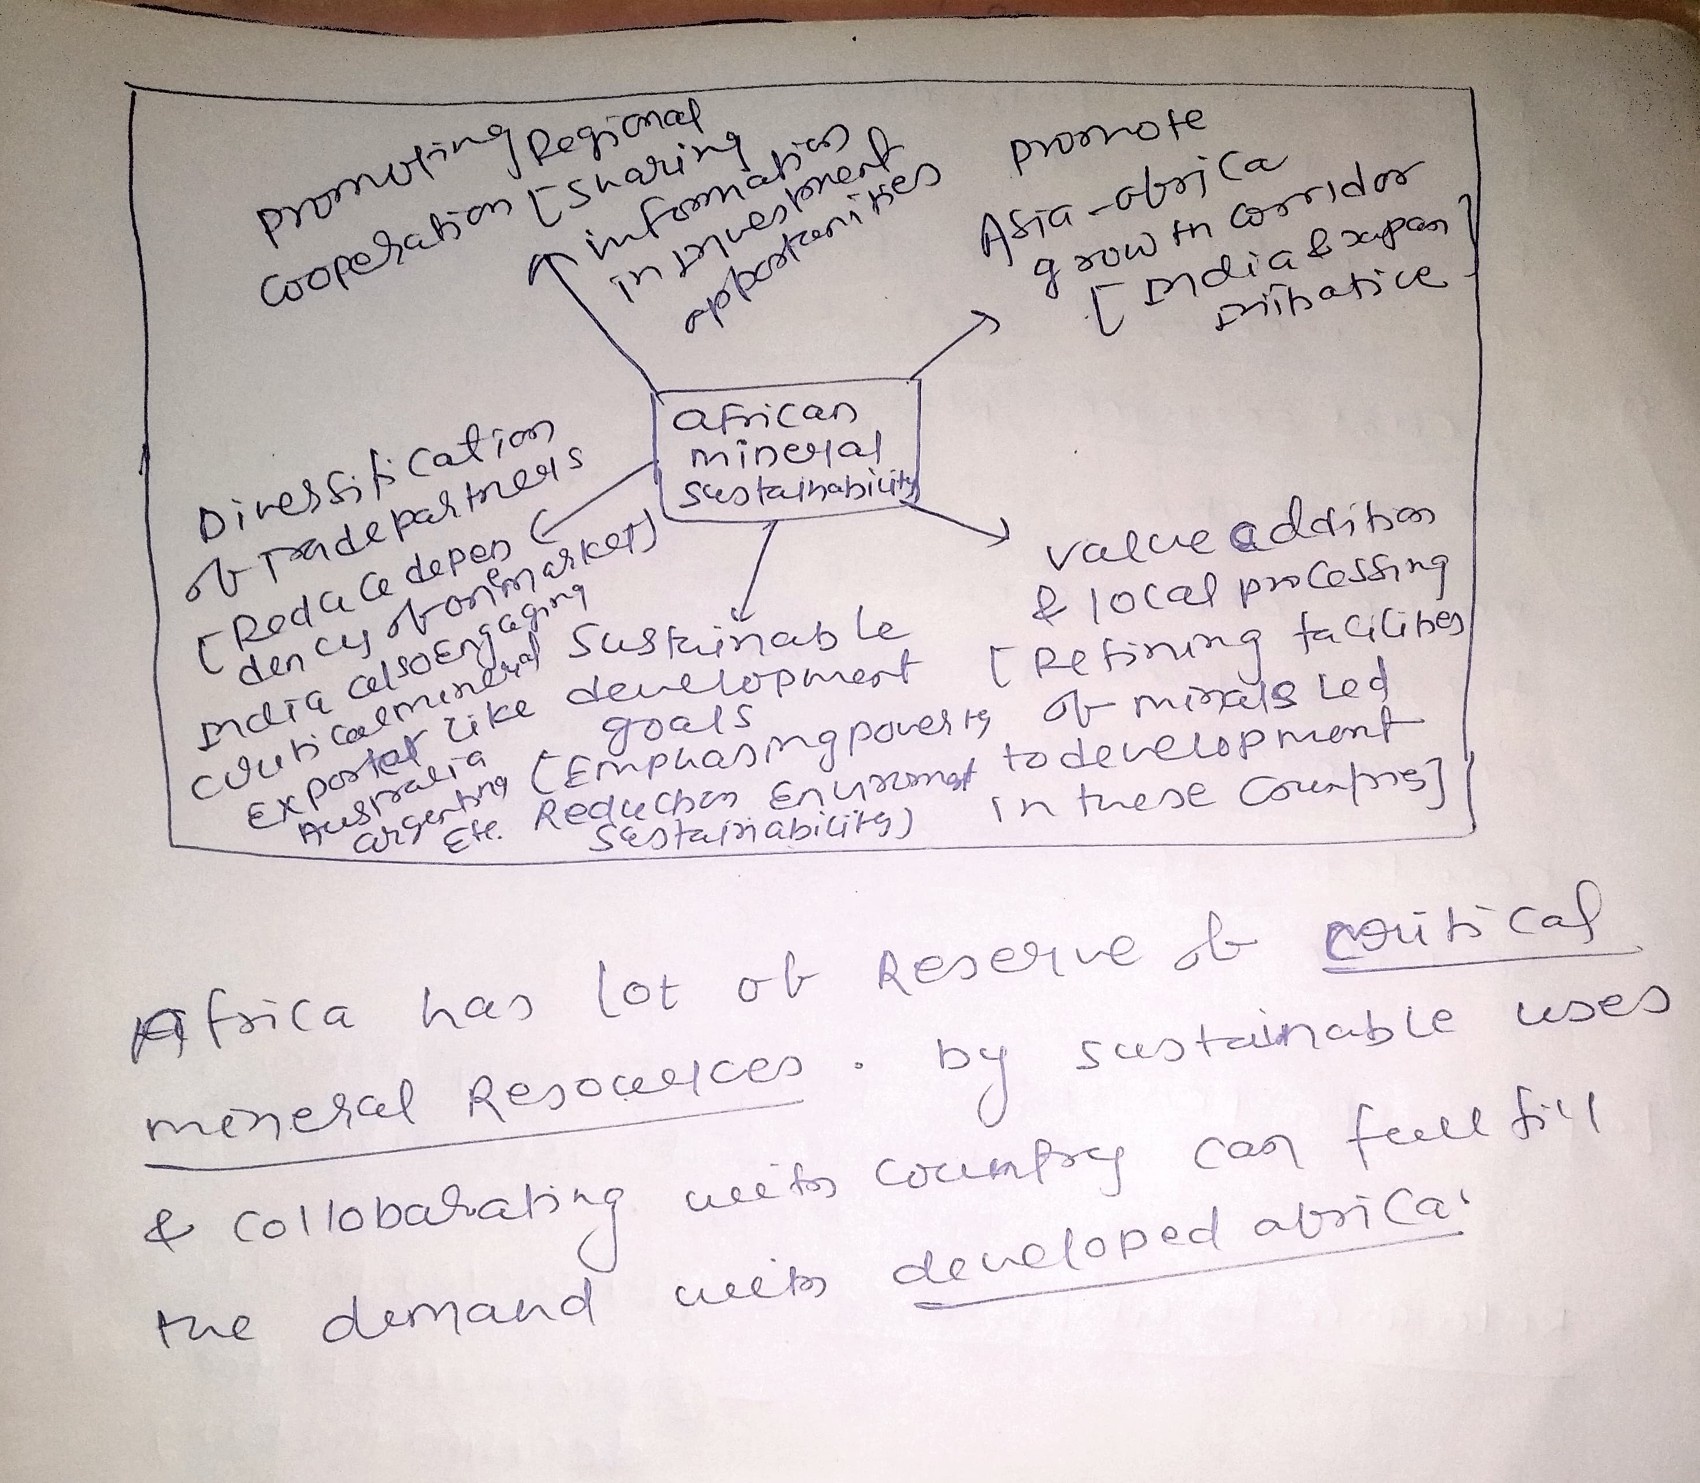 Promoting Regional
cooperation [Sharing
information
in Investment
opportunities
Promote
Asia-Africa
growth corridor
[India & Japan]
Initiative
African
mineral
sustainability
Diversification
of Trade partners
[Reduce depen
dency of one market)
India also Engaging
critical mineral
Exporter like
Australia
argentina
Etc.
Sustainable
development
goals
(Emphasing poverty
Reduction Enviroment
Sustainability)
value addition
& local processing
[Refining facilities
of minrals led
to development
in these countries]
Africa has lot of Reserve of critical
mineral Resources. by sustainable uses
& collobarating with country can fullfill
the demand with developed africa.